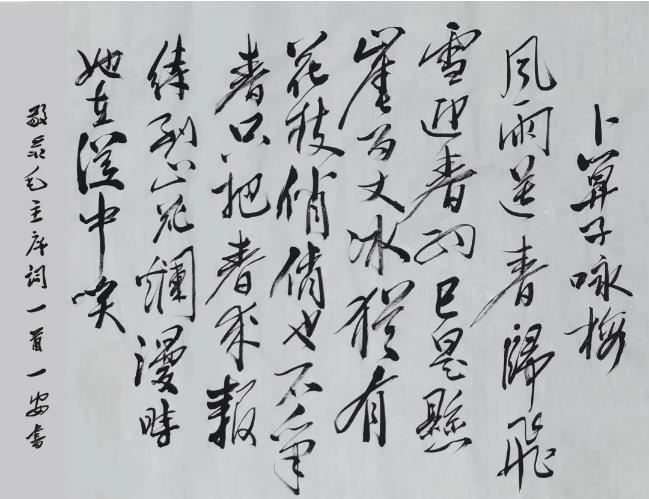 卜算子咏梅
风雨送春歸飛
雪迎春到已是懸
崖百丈冰猶有
花枝俏俏也不争
春只把春来報
待到山花爛漫時
她在從中笑
敬录毛主席词一首一安书